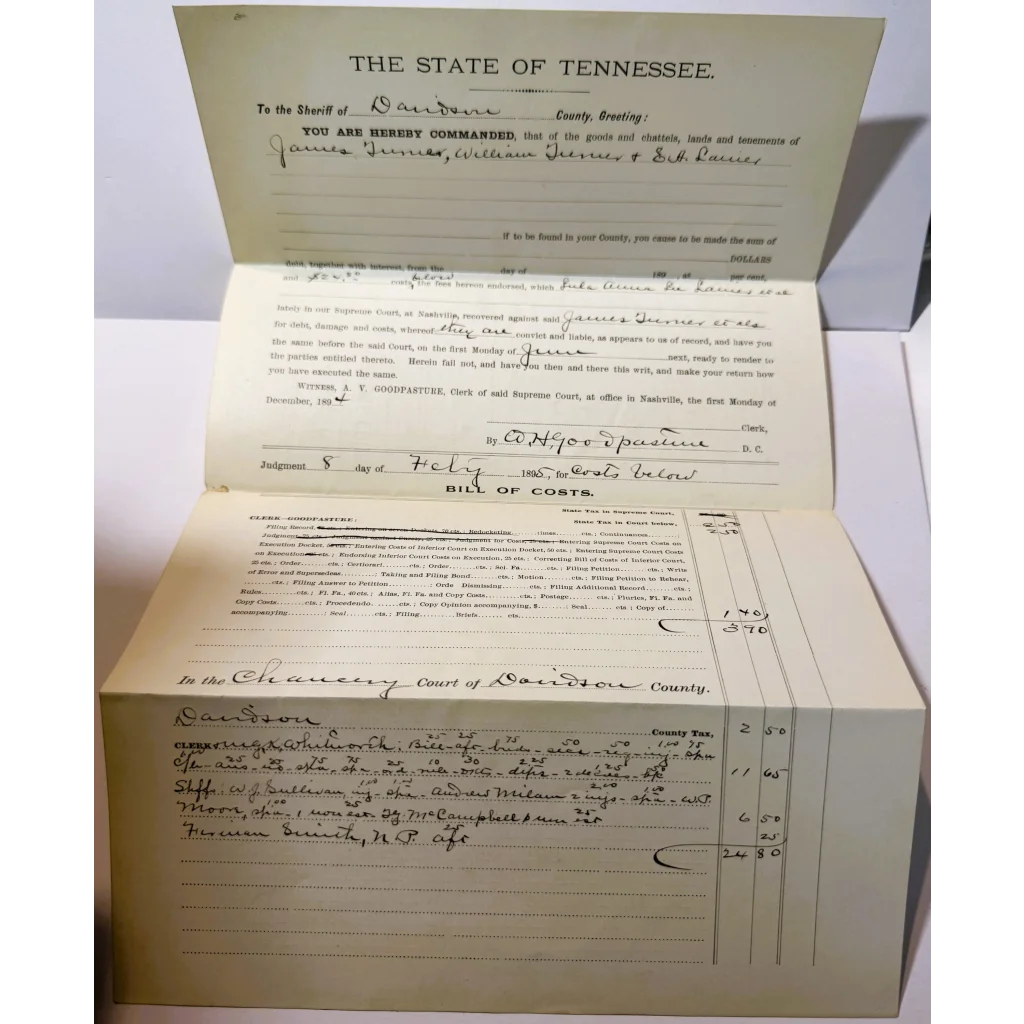 THE STATE OF TENNESSEE.
To the Sheriff of Davidson County, Greeting:
YOU ARE HEREBY COMMANDED, that of the goods and chattels, lands and tenements of
James Turner, William Turner & S.A. Lanier
if to be found in your County, you cause to be made the sum of
DOLLARS
debt, together with interest, from the day of 189 , at per cent,
and $24.80 costs, below the fees hereon endorsed, which Lula Anna Lanier et al
lately in our Supreme Court, at Nashville, recovered against said James Turner et als
for debt, damage and costs, whereof they are convict and liable, as appears to us of record, and have you
the same before the said Court, on the first Monday of June next, ready to render to
the parties entitled thereto. Herein fail not, and have you then and there this writ, and make your return how
you have executed the same.
WITNESS, A. V. GOODPASTURE, Clerk of said Supreme Court, at office in Nashville, the first Monday of
December, 1894
Clerk,
By W.H. Goodpasture D. C.
Judgment 8 day of Feby 1895, for Costs below
BILL OF COSTS.
State Tax in Supreme Court,
CLERK—GOODPASTURE: State Tax in Court below, 2 50
Filing Record, cts.; Entering on seven Dockets, 70 cts.; Redocketing times cts.; Continuances cts.; 2 50
Judgment, 75 cts.; Judgment against Surety, 25 cts.; Judgment for Costs, 25 cts.; Entering Supreme Court Costs on
Execution Docket, 50 cts.; Entering Costs of Inferior Court on Execution Docket, 50 cts.; Entering Supreme Court Costs
on Execution cts.; Endorsing Inferior Court Costs on Execution, 25 cts.; Correcting Bill of Costs of Inferior Court,
25 cts.; Order cts.; Certiorari cts.; Order cts.; Sci. Fa. cts.; Filing Petition cts.; Writs
of Error and Supersedeas ; Taking and Filing Bond cts.; Motion cts.; Filing Petition to Rehear,
cts.; Filing Answer to Petition cts. Orde Dismissing cts.; Filing Additional Record cts.;
Rules cts.; Fi. Fa., 40 cts.; Alias, Fi. Fa. and Copy Costs cts.; Postage cts.; Pluries, Fi. Fa. and
Copy Costs cts.; Procedendo cts.; Copy Opinion accompanying, $ Seal cts.; Copy of
accompanying ; Seal cts.; Filing Briefs cts. 1 40
3 90
In the Chancery Court of Davidson County.
Davidson County Tax, 2 50
25 25 75 50 50 1.00 75
CLERK Whitworth: Bill - afr - bnds - inj - spa
25 75 75 25 10 30 2 25
ans - spa, spa - ord - 2 decrees 11 65
1.00 2.00 1.00
Shffs: W.J. Sullivan, inj - spa - Andrew Milam 2 injs - spa - W.P.
1.00 25 25
Moore, spa - 1 non est. McCampbell non est 6 50
25
Firman Smith, N.P. afr 25
24 80